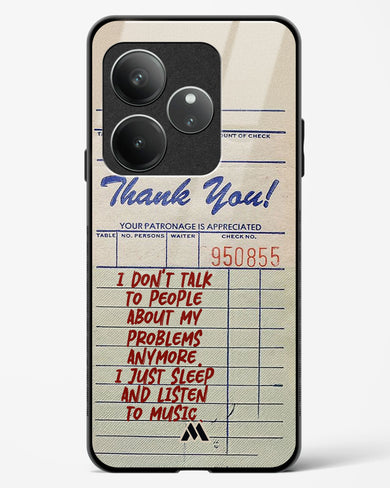 OUNT OF CHECK
Thank You!
YOUR PATRONAGE IS APPRECIATED
TABLE NO. PERSONS WAITER CHECK NO.
950855
I DON'T TALK
TO PEOPLE
ABOUT MY
PROBLEMS
ANYMORE.
I JUST SLEEP
AND LISTEN
TO MUSIC.